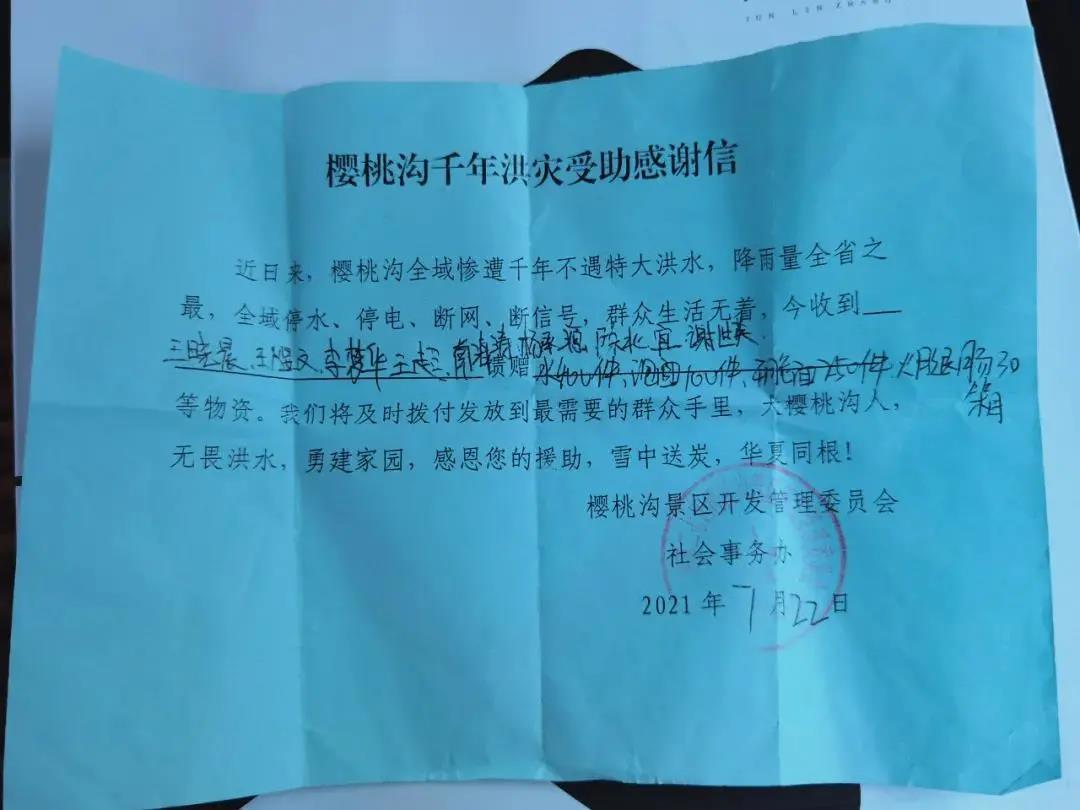 JUN LIN ZHANG
樱桃沟千年洪灾受助感谢信
近日来，樱桃沟全域惨遭千年不遇特大洪水，降雨量全省之
最，全域停水、停电、断网、断信号，群众生活无着，今收到
王晓晨、王 文、李梦华 王超 馈赠 水400件、 100件、 250件 火腿肠30
箱
等物资。我们将及时拨付发放到最需要的群众手里，大樱桃沟人，
无畏洪水，勇建家园，感恩您的援助，雪中送炭，华夏同根！
樱桃沟景区开发管理委员会
社会事务办
2021 年 7 月 22 日